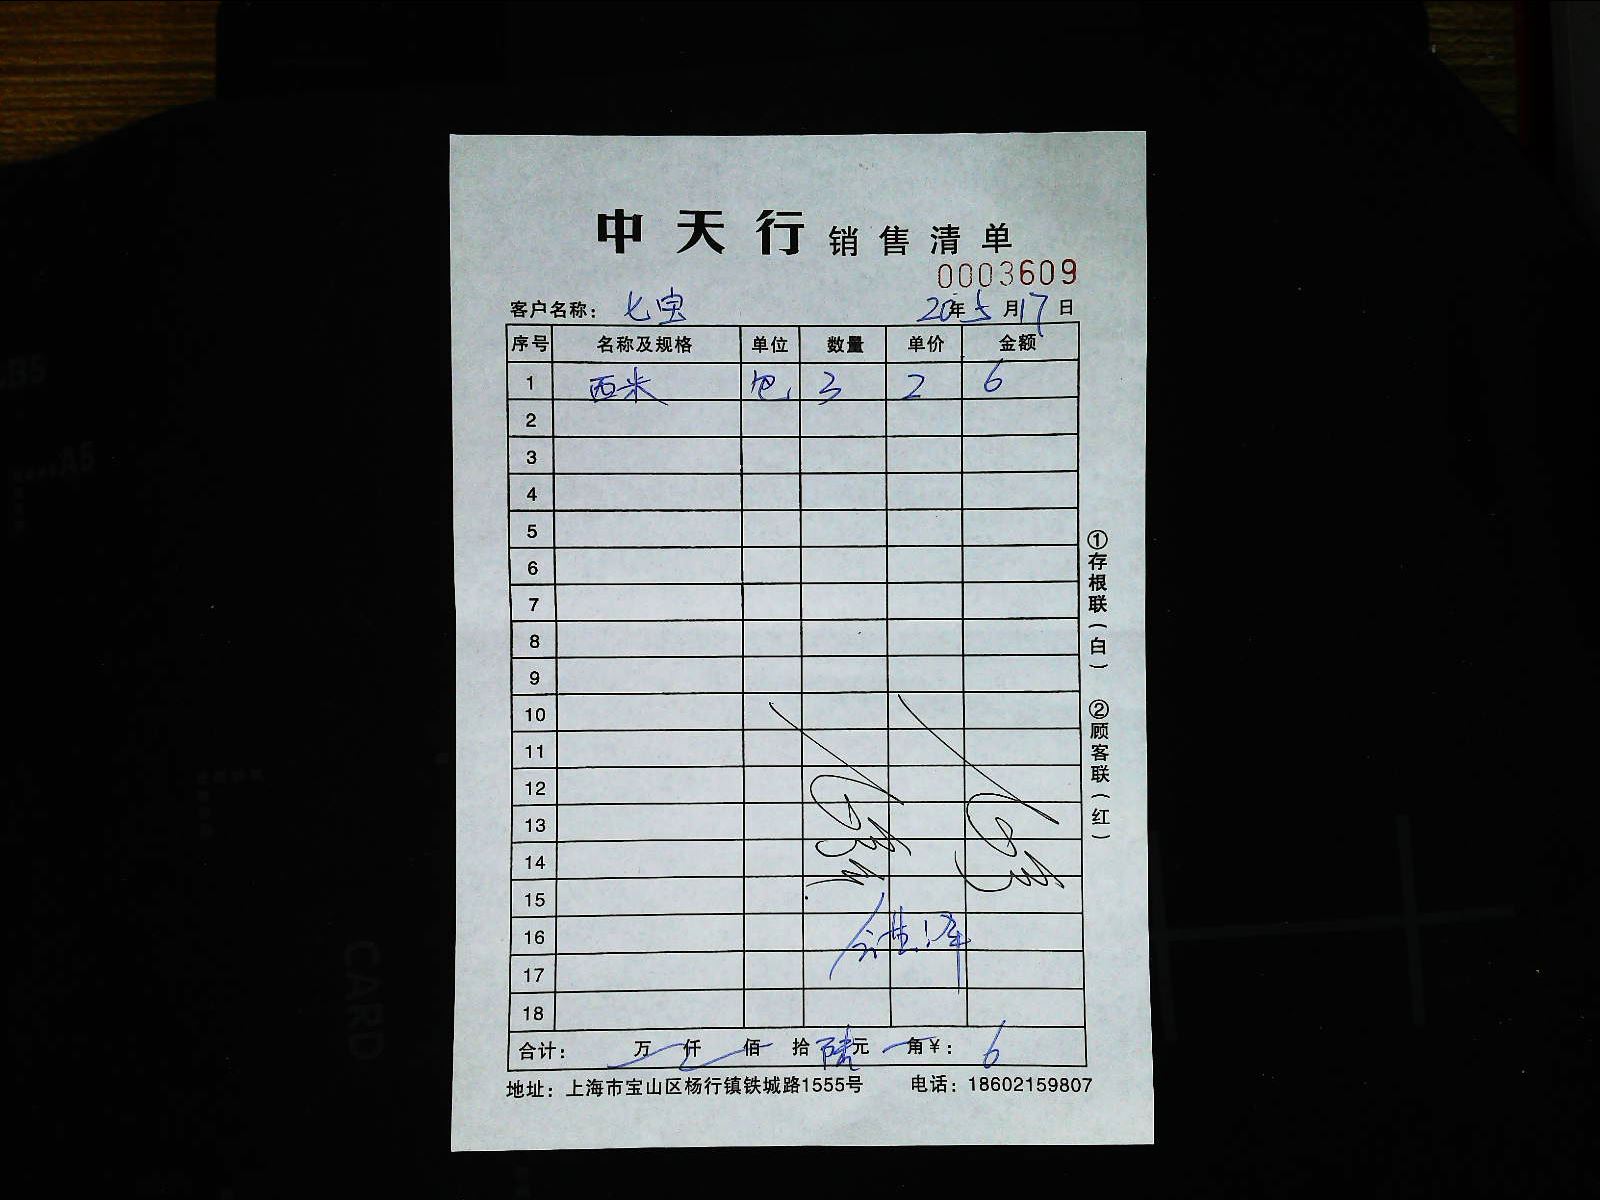 中天行 销售清单
0003609
客户名称：七宝 20年5月17日
序号 名称及规格 单位 数量 单价 金额
1 西米 包 3 2 6
2
3
4
5
6
7
8
9
10
11
12
13
14
15
16
17
18
合计： 万 仟 佰 拾 陆元 角￥：6
地址：上海市宝山区杨行镇铁城路1555号 电话：18602159807
①存根联（白） ②顾客联（红）
CARD
A5